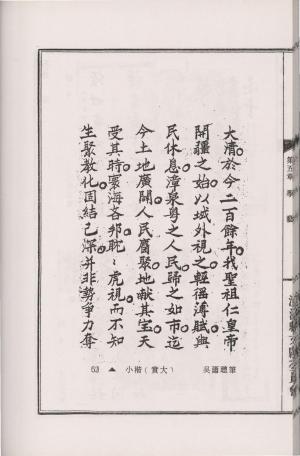 大清於今二百餘年我聖祖仁皇帝
開疆之始以域外視之輕徭薄賦與
民休息漳泉粵之人民歸之如市迄
今土地廣闢人民廣聚地獻其宝天
受其時寰海各邦眈〻虎視而不知
生聚教化固結已深并非勢爭力奪
63 ▲ 小楷(實大) 吳蔭聰筆
第五章 學藝